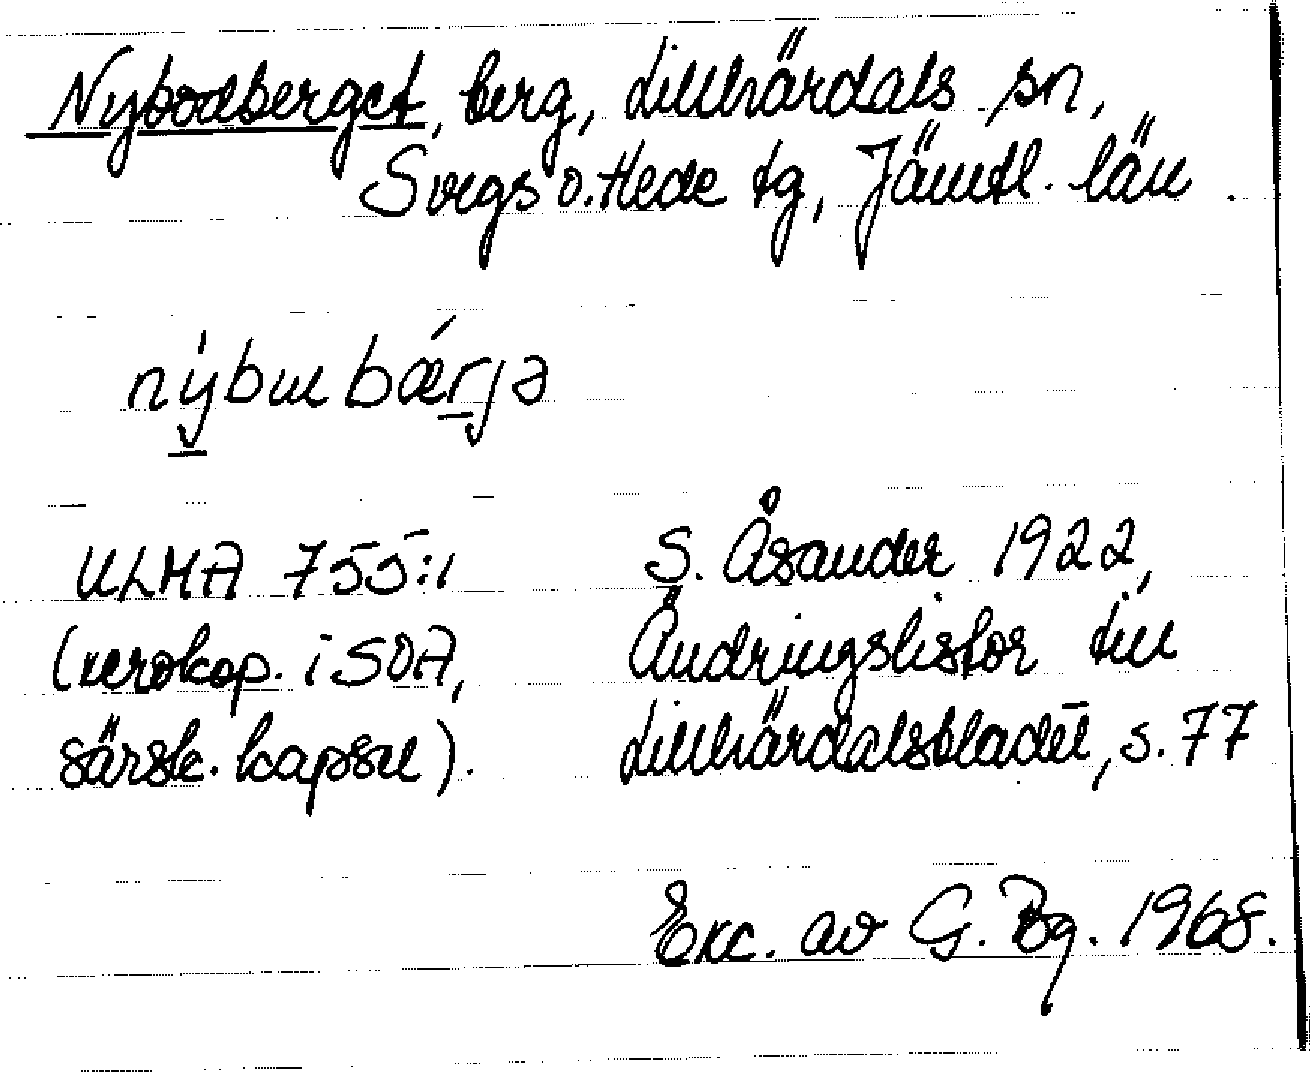 Nybodberget, berg, Lillhärdals sn,
Svegs o. Hede tg, Jämtl. län.
ULMA 755:1
S. Åsander 1922,
(xerokop. i SOA,
Ändringslistor till
särsk. kapsel).
Lillhärdalsbladet, s. 77
Exc. av G. Bg. 1968.